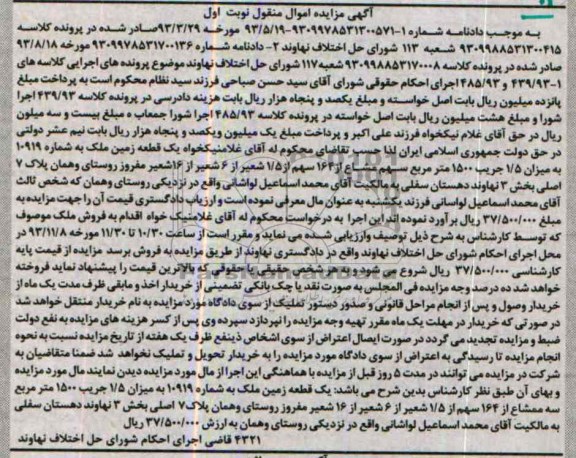 آگهی مزایده اموال منقول نوبت اول
به موجب دادنامه شماره ۱-۹۳۰۹۹۷۸۵۳۱۳۰۰۵۷۱-۹۳/۵/۱۹ مورخه ۹۳/۳/۲۹صادر شده در پرونده کلاسه
۹۳۰۹۹۸۸۵۳۱۳۰۰۴۱۵ شعبه ۱۱۳ شورای حل اختلاف نهاوند ۲- دادنامه شماره ۹۳۰۹۹۷۸۵۳۱۷۰۰۱۳۶ مورخه ۹۳/۸/۱۸
صادر شده در پرونده کلاسه ۹۳۰۹۹۸۸۵۳۱۷۰۰۰۸ شعبه۱۱۷ شورای حل اختلاف نهاوند موضوع پرونده های اجرایی کلاسه های
۱-۴۳۹/۹۳ و ۴۸۵/۹۳ اجرای احکام حقوقی شورای آقای سید حسن صباحی فرزند سید نظام محکوم است به پرداخت مبلغ
پانزده میلیون ریال بابت اصل خواسته و مبلغ یکصد و پنجاه هزار ریال بابت هزینه دادرسی در پرونده کلاسه ۴۳۹/۹۳ اجرا
شورا و مبلغ هشت میلیون ریال بابت اصل خواسته در پرونده کلاسه ۴۸۵/۹۳ اجرا شورا جمعاب ه مبلغ بیست و سه میلون
ریال در حق آقای غلام نیکخواه فرزند علی اکبر و پرداخت مبلغ یک میلیون ویکصد و پنجاه هزار ریال بابت نیم عشر دولتی
در حق دولت جمهوری اسلامی ایران لذا حسب تقاضای محکوم له آقای غلامنیکخواه یک قطعه زمین ملک به شماره ۱۰۹۱۹
به میزان ۱/۵ جریب ۱۵۰۰ متر مربع سهم مشاع از ۱۶۴ سهم از۱/۵ شعیر از ۶ شعیر از ۱۶شعیر مفروز روستای وهمان پلاک ۷
اصلی بخش ۳ نهاوند دهستان سفلی به مالکیت آقای محمد اسماعیل لواشانی واقع در نزدیکی روستای وهمان که شخص ثالث
آقای محمد اسماعیل لواسانی فرزند یکشنبه به عنوان مال معرفی نموده است و ارزیاب دادگستری قیمت آن را جهت مزایده به
مبلغ ۳۷/۵۰۰/۰۰۰ ریال برآورد نموده اند این اجرا به درخواست محکوم له آقای غلامنیک خواه اقدام به فروش ملک موصوف
که توسط کارشناس به شرح ذیل توصیف وارزیابی شده می نماید و مقرر است از ساعت ۱۰/۳۰ تا ۱۱/۳۰ مورخه ۹۳/۱۱/۸ در
محل اجرای احکام شورای حل اختلاف نهاوند واقع در دادگستری نهاوند از طریق مزایده به فروش برسد مزایده از قیمت پایه
کارشناسی ۳۷/۵۰۰/۰۰۰ ریال شروع می شود و هر شخص حقیقی یا حقوقی که بالاترین قیمت را پیشنهاد نماید فروخته
خواهد شد ده درصد وجه مزایده فی المجلس به صورت نقد یا چک بانکی تضمینی از خریدار اخذ و مابقی ظرف مدت یک ماه از
خریدار وصول و پس از انجام مراحل قانونی و صدور دستور تملیک از سوی دادگاه مورد مزایده به نام خریدار منتقل خواهد شد
در صورتی که خریدار در مهلت یک ماه مقرر تهیه وجه مزایده را نپردازد سپرده وی پس از کسر هزینه های مزایده به نفع دولت
ضبط و مزایده تجدید می گردد در صورت ایصال اعتراض از سوی اشخاص ذینفع ظرف یک هفته از تاریخ مزایده نسبت به نحوه
انجام مزایده تا رسیدگی به اعتراض از سوی دادگاه مورد مزایده را به خریدار تحویل و تملیک نخواهد شد ضمنا متقاضیان به
شرکت در مزایده می توانند در مدت ۵ روز قبل از مزایده با هماهنگی این اجرا از مال مورد مزایده دیدن نمایند مال مورد مزایده
و بهای آن طبق نظر کارشناس بدین شرح می باشد: یک قطعه زمین ملک به شماره ۱۰۹۱۹ به میزان ۱/۵ جریب ۱۵۰۰ متر مربع
سه ممشاع از ۱۶۴ سهم از ۱/۵ شعیر از ۶ شعیر از ۱۶ شعیر مفروز روستای وهمان پلاک۷ اصلی بخش ۳ نهاوند دهستان سفلی
به مالکیت آقای محمد اسماعیل لواشانی واقع در نزدیکی روستای وهمان به ارزش ۳۷/۵۰۰/۰۰۰ ریال
۴۳۲۱ قاضی اجرای احکام شورای حل اختلاف نهاوند